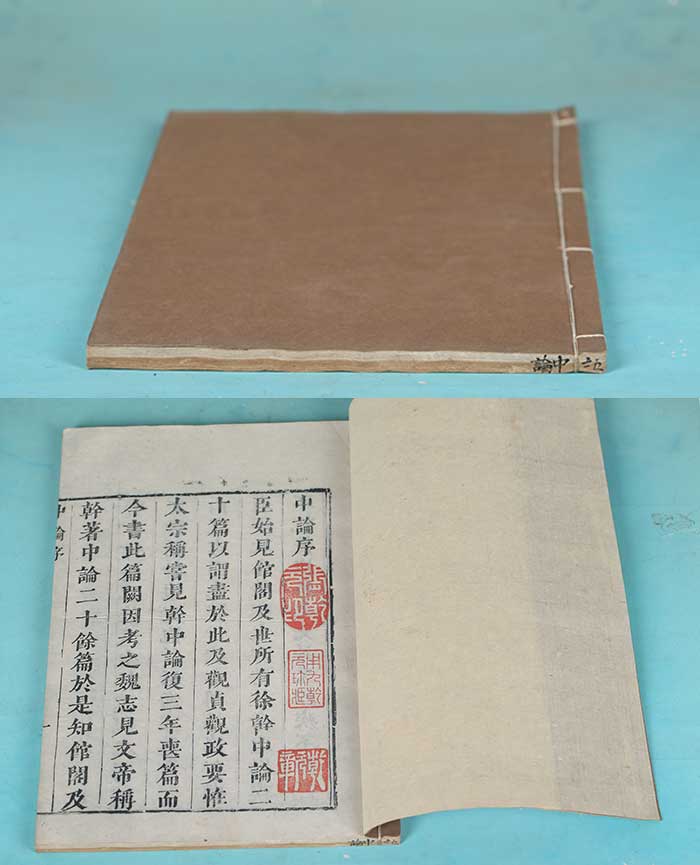 中論
中論序
臣始見館閣及世所有徐幹中論二
十篇以謂盡於此及觀貞觀政要恠
太宗稱嘗見幹中論復三年喪篇而
今書此篇闕因考之魏志見文帝稱
幹著中論二十餘篇於是知館閣及
中論序
一